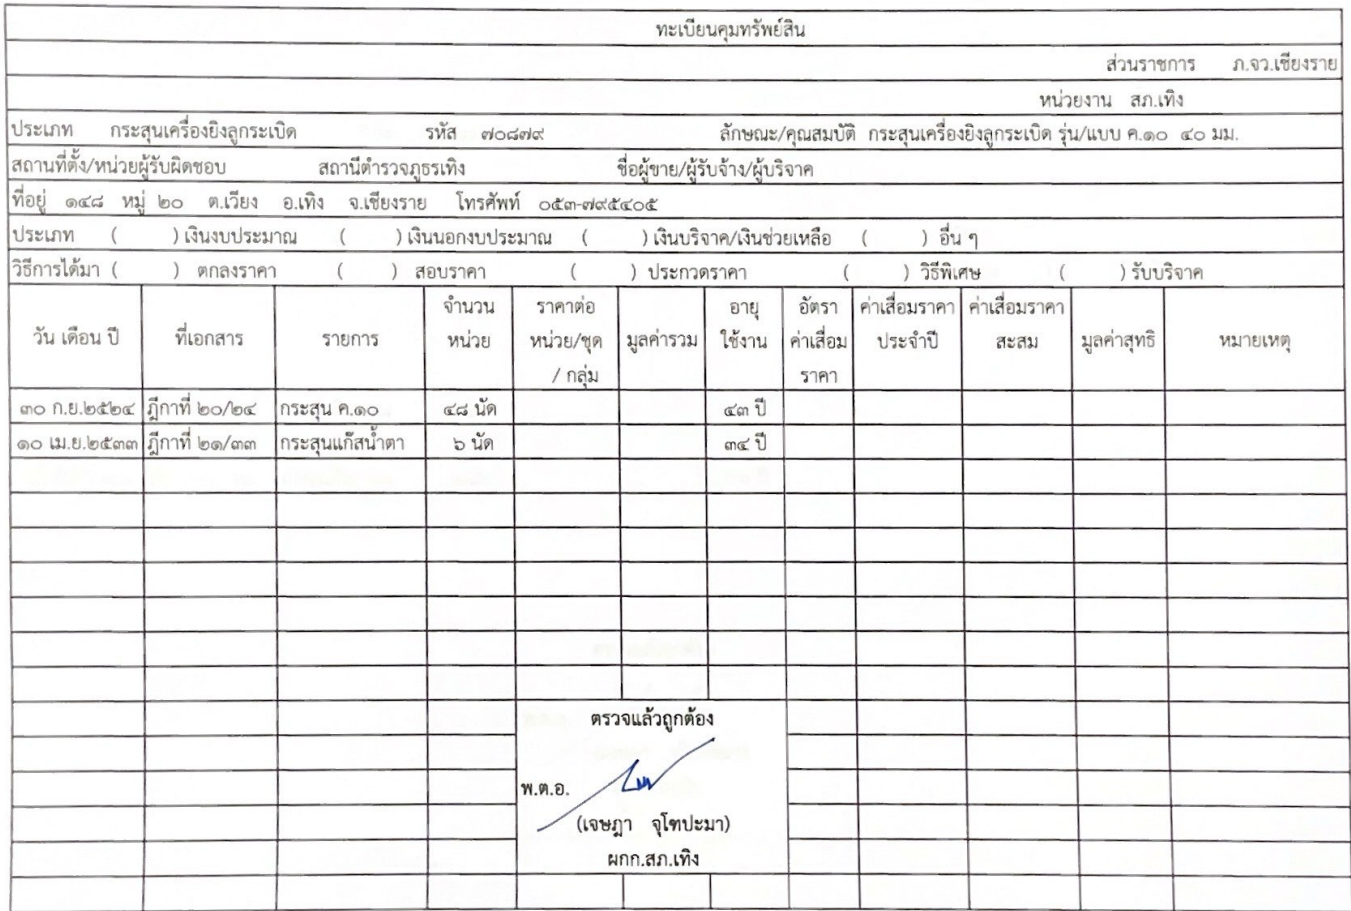 ทะเบียนคุมทรัพย์สิน
ส่วนราชการ ภ.จว.เชียงราย
หน่วยงาน สภ.เทิง
ประเภท กระสุนเครื่องยิงลูกระเบิด รหัส ๗๐๘๗๙ ลักษณะ/คุณสมบัติ กระสุนเครื่องยิงลูกระเบิด รุ่น/แบบ ค.๑๐ ๔๐ มม.
สถานที่ตั้ง/หน่วยผู้รับผิดชอบ สถานีตำรวจภูธรเทิง ชื่อผู้ขาย/ผู้รับจ้าง/ผู้บริจาค
ที่อยู่ ๑๔๘ หมู่ ๒๐ ต.เวียง อ.เทิง จ.เชียงราย โทรศัพท์ ๐๕๓-๗๙๕๔๐๕
ประเภท ( ) เงินงบประมาณ ( ) เงินนอกงบประมาณ ( ) เงินบริจาค/เงินช่วยเหลือ ( ) อื่น ๆ
วิธีการได้มา ( ) ตกลงราคา ( ) สอบราคา ( ) ประกวดราคา ( ) วิธีพิเศษ ( ) รับบริจาค
วัน เดือน ปี ที่เอกสาร รายการ จำนวน หน่วย ราคาต่อ หน่วย/ชุด / กลุ่ม มูลค่ารวม อายุ ใช้งาน อัตรา ค่าเสื่อม ราคา ค่าเสื่อมราคา ประจำปี ค่าเสื่อมราคา สะสม มูลค่าสุทธิ หมายเหตุ
๓๐ ก.ย.๒๕๒๔ ฎีกาที่ ๒๐/๒๔ กระสุน ค.๑๐ ๔๘ นัด ๔๓ ปี
๑๐ เม.ย.๒๕๓๓ ฎีกาที่ ๒๑/๓๓ กระสุนแก๊สน้ำตา ๖ นัด ๓๔ ปี
ตรวจแล้วถูกต้อง
พ.ต.อ.
(เจษฎา จุโฑปะมา)
ผกก.สภ.เทิง